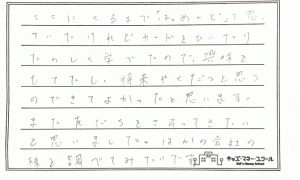 ここにくるまで「はめんど」で思
ていたけれどカードをひいたり
たのしく学べたので、興味を
もてたし、将来やくだつと思う
のできてよかったと思います。
また友だちをさそってきたい
と思いました。ほかの会社の
株を調べてみたいです
キッズ・マネー・スクール
Kid's Money School